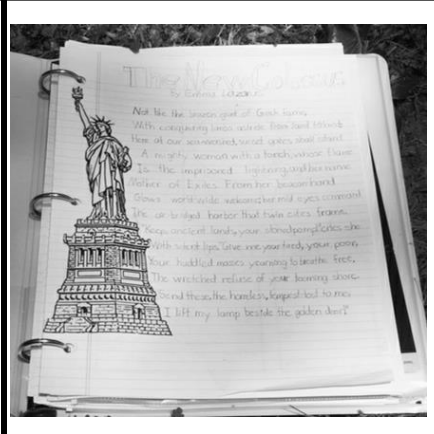 The New Colossus
By Emma Lazarus
Not like the brazen giant of Greek fame,
With conquering limbs astride from land to land;
Here at our sea-washed, sunset gates shall stand
A mighty woman with a torch, whose flame
Is the imprisoned lightning, and her name
Mother of Exiles. From her beacon-hand
Glows world-wide welcome; her mild eyes command
The air-bridged harbor that twin cities frame.
"Keep ancient lands, your storied pomp!" cries she
With silent lips. "Give me your tired, your poor,
Your huddled masses yearning to breathe free,
The wretched refuse of your teeming shore.
Send these, the homeless, tempest-tost to me,
I lift my lamp beside the golden door!"